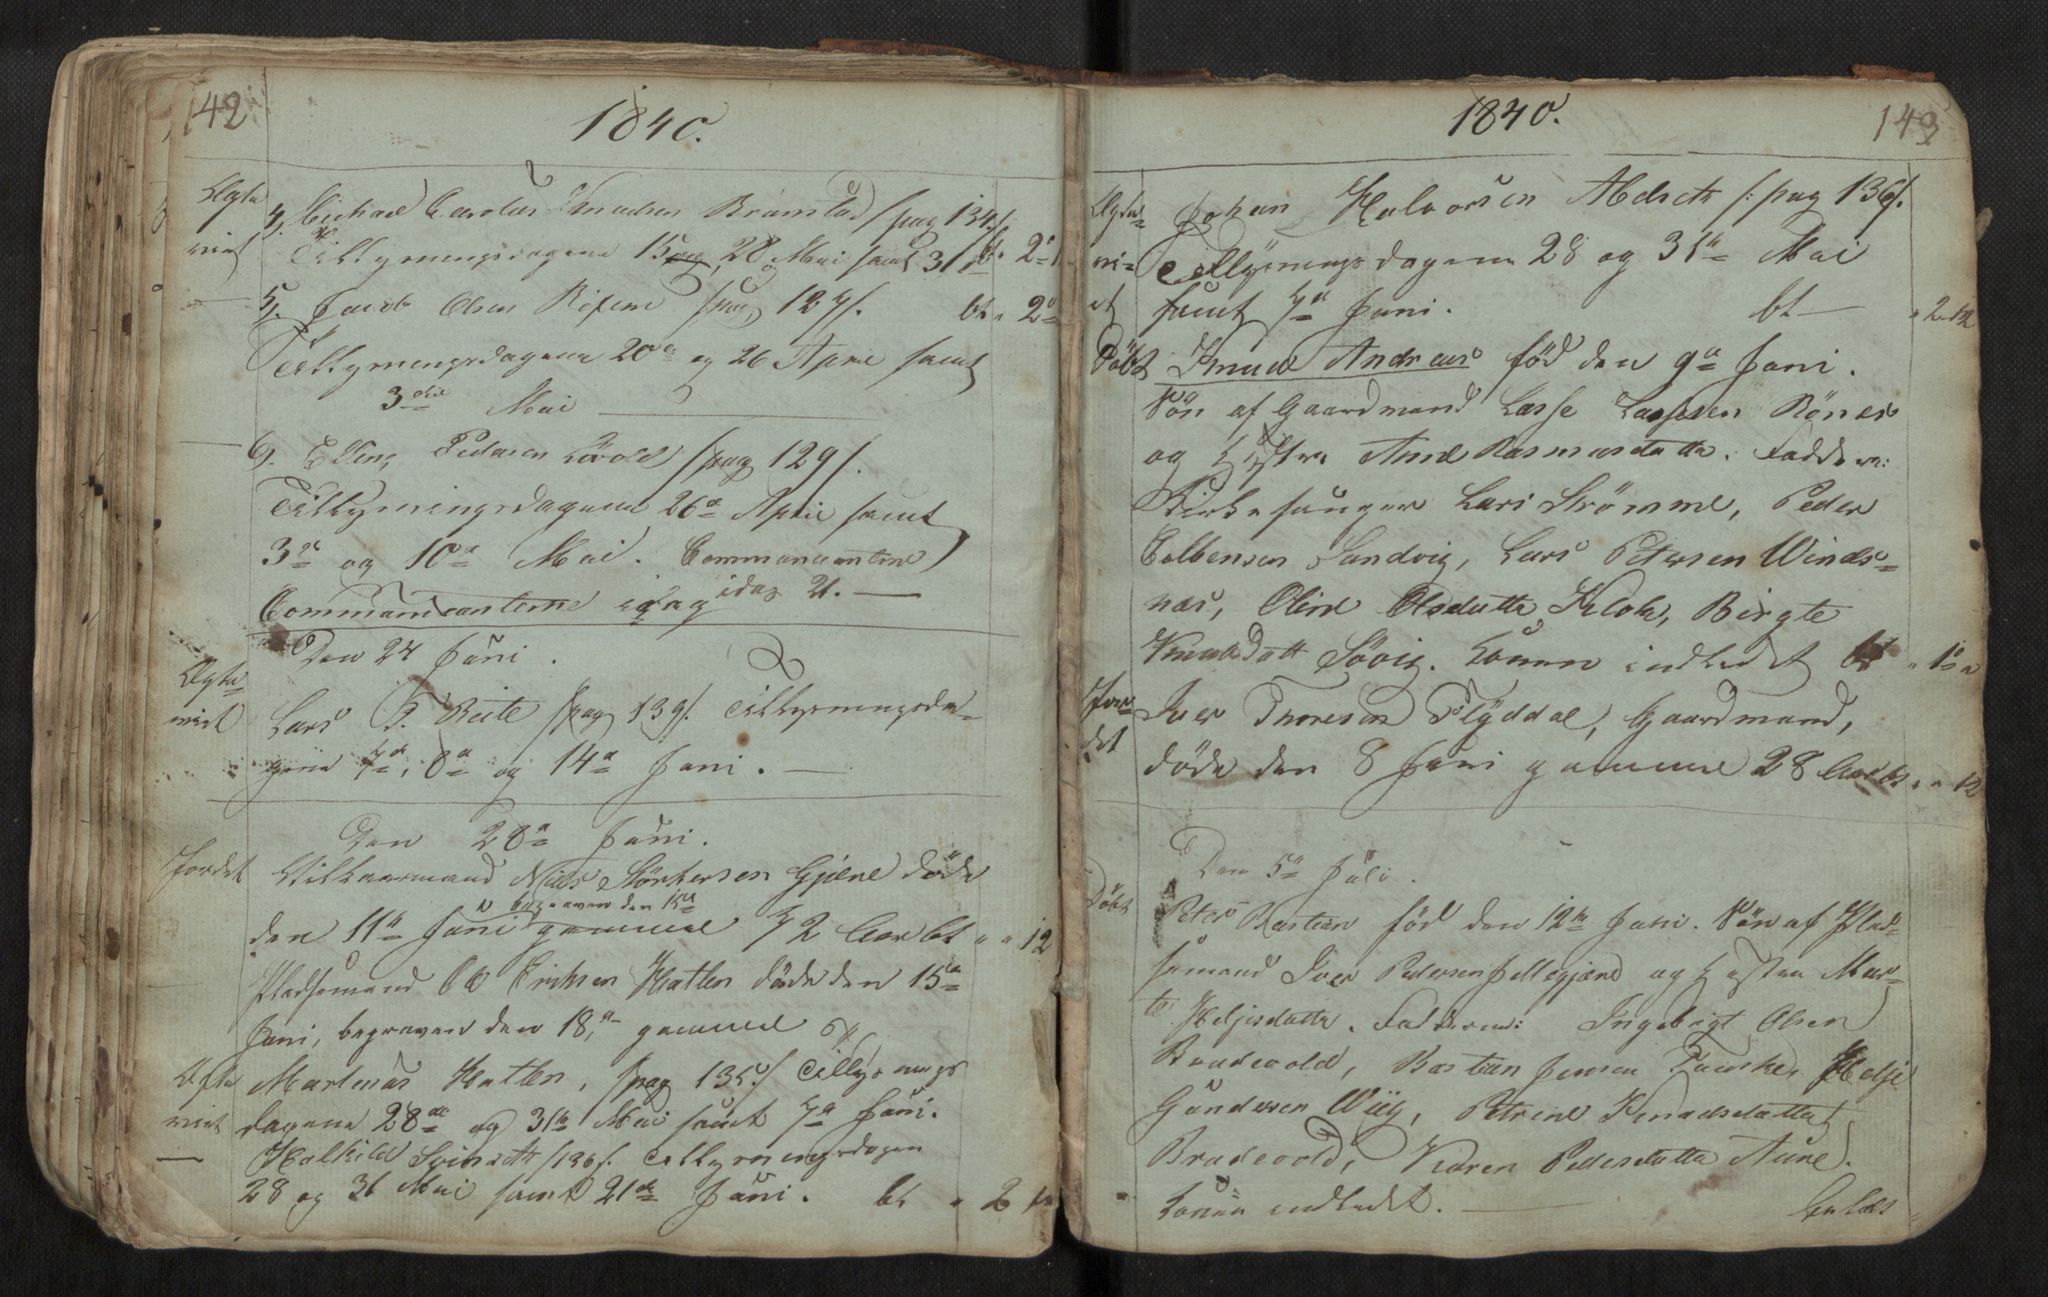 142
1840.
Ægte
viet
4, Michael Carolus Knudsen Bramstad /pag 134/.
Tillysningsdagene 15 og 28 Mai samt 31 bt. 2
5. Jacob Olsen /pag 127/. bt. 2
Tillysningsdagene 20 og 26 April samt
3die Mai
6. Elling Pedersen Lövold /pag 129/.
Tillysningsdagene 26de April samt
3de og 10de Mai. Communicanterne
Communicanterne idag idag 21.
Den 24 Juni.
Ægte
viet
Lars P. Reite /pag 139/. Tillysningsda-
gene 7de, 8de og 14de Juni.
Den 28de Juni.
Jordet
Vilkaarmand Niels Störkersen Gjære döde
begraven den 15de
den 11te Juni gammel 72 Aar bt " " 12
Pladsemand Ole Eriksen Hatlen döde den 15de
Juni, begraven den 18de gammel
Ægte
viet
Martinus Hatlen, /pag 135/ Tillysnings
dagene 28de og 31te Mai samt 7de Juni.
Halkild /136/. Tillysningsdagen
28 og 31 Mai samt 21de Juni. bt " 2
143
1840.
Ægte-
vi-
et
Johan Halvorsen Aldseth /: pag 136/.
Tillysningsdagene 28 og 31te Mai
samt 7de Juni. bt — " 2 12
Döbt
Knud Andreas född den 9de Juni.
Sön af Gaardmand Lasse Lassesen Rönes
og Hustru Anne Rasmusdatter. Faddere:
Kirkesanger Lars Strömme, Peder
Colbensen Sandvig, Lars Petersen Winds-
næs, Oline Olsdatter Klok, Birgte
Knudsdatt Sövig. Konen indledet bt " 1
Jor-
det
Iver Thoresen Flyddal, Gaardmand,
döde den 8 Juni gammel 28 Aar bt. " " 12
Den 5te Juli.
Döbt
Peter Bastian föd den 12te Juni. Sön af Plad-
semand Iver Pedersen og Hustru Mar-
te Heljesdatter. Faddere: Ingebrigt Olsen
Bradevold, Bastian Jensen Helje
Gundersen Wiig, Petrine Knudsdatter
Bradevold, Karen Pedersdatter Aure.
Konen indledet.